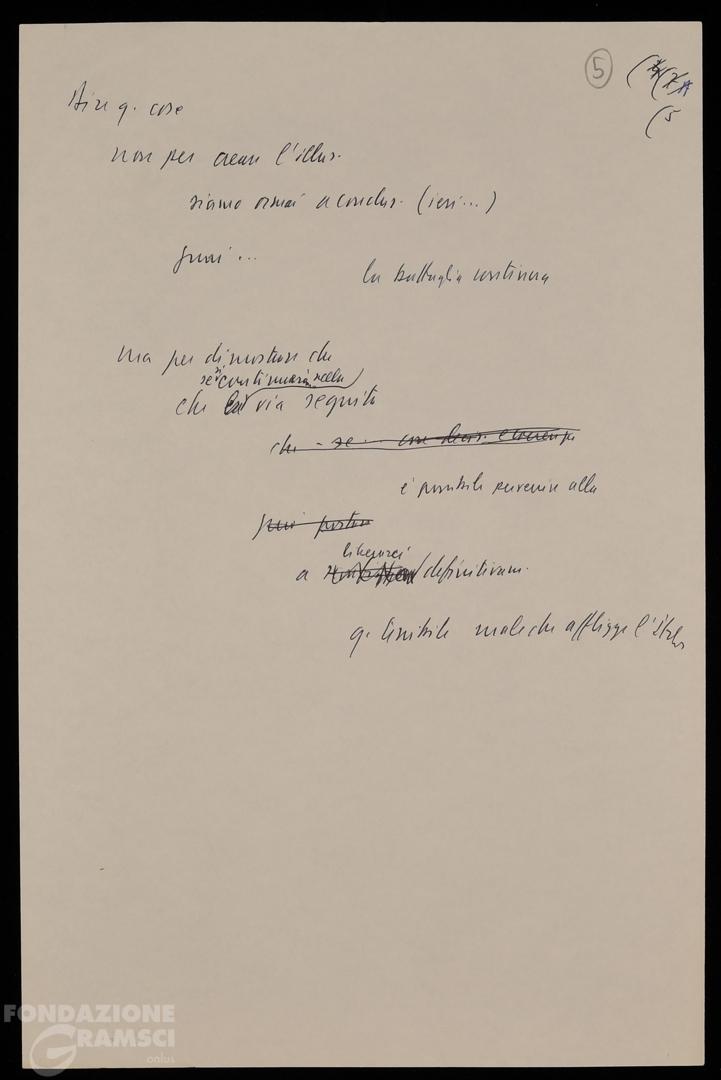 5
(5
Dire q. cose
non per creare l'illus.
siamo ormai a conclus. (ieri...)
guai ...
la battaglia continua
ma per dimostrare che
se si continuerà nella
che la via seguita
che - se ... con decis. e coerenza
è possibile pervenire alla
può portare
liberarci
a definitivam.
q. terribile male che affligge l'Italia
FONDAZIONE
GRAMSCI
onlus